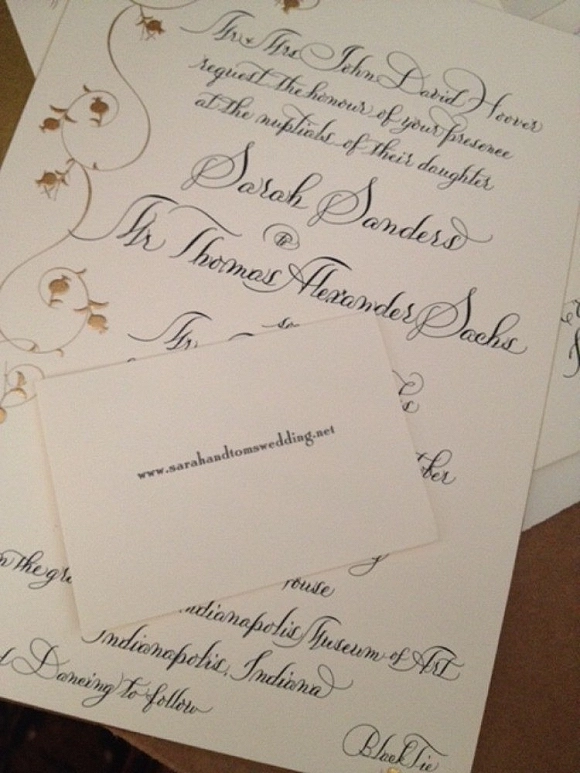 Mr & Mrs John David Hoover
request the honour of your presence
at the nuptials of their daughter
Sarah Sanders
to
Mr Thomas Alexander Sachs
so
Mr
www.sarahandtomswedding.net
Indianapolis Museum of Art
Indianapolis, Indiana
Dancing to follow
Black Tie